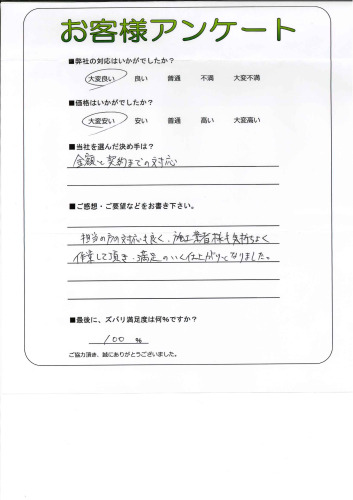 お客様アンケート
■弊社の対応はいかがでしたか？
大変良い 良い 普通 不満 大変不満
■価格はいかがでしたか？
大変安い 安い 普通 高い 大変高い
■当社を選んだ決め手は？
金額と契約までの対応
■ご感想・ご要望などをお書き下さい。
担当の方の対応も良く、施工業者様も気持ちよく
作業して頂き、満足のいく仕上がりとなりました。
■最後に、ズバリ満足度は何%ですか？
100 %
ご協力頂き、誠にありがとうございました。